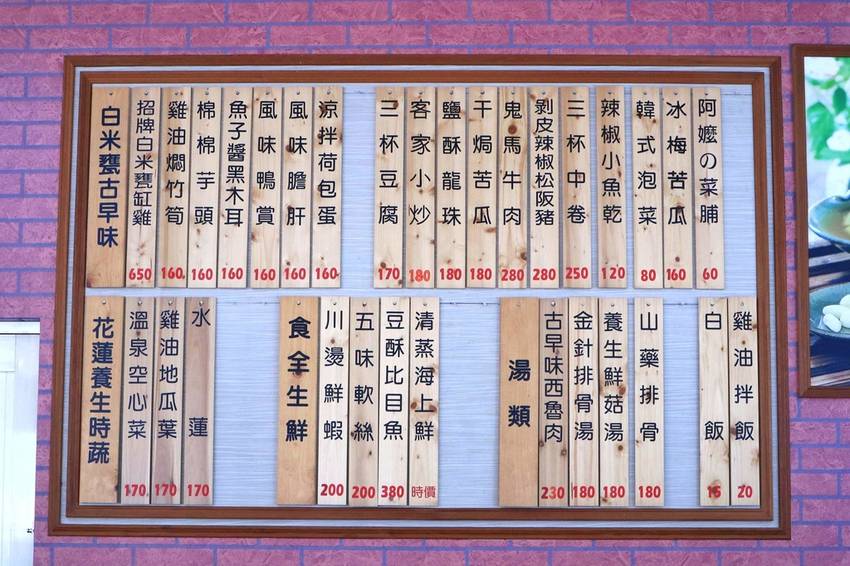 白米甕古早味
招牌白米甕缸雞 650
雞油燜竹筍 160
棉棉芋頭 160
魚子醬黑木耳 160
風味鴨賞 160
風味膽肝 160
涼拌荷包蛋 160
三杯豆腐 170
客家小炒 180
鹽酥龍珠 180
干焗苦瓜 180
鬼馬牛肉 280
剝皮辣椒松阪豬 280
三杯中卷 250
辣椒小魚乾 120
韓式泡菜 80
冰梅苦瓜 160
阿嬤の菜脯 60
花蓮養生時蔬
溫泉空心菜 170
雞油地瓜葉 170
水蓮 170
食全生鮮
川燙鮮蝦 200
五味軟絲 200
豆酥比目魚 380
清蒸海上鮮 時價
湯類
古早味西魯肉 230
金針排骨湯 180
養生鮮菇湯 180
山藥排骨 180
白飯 15
雞油拌飯 20